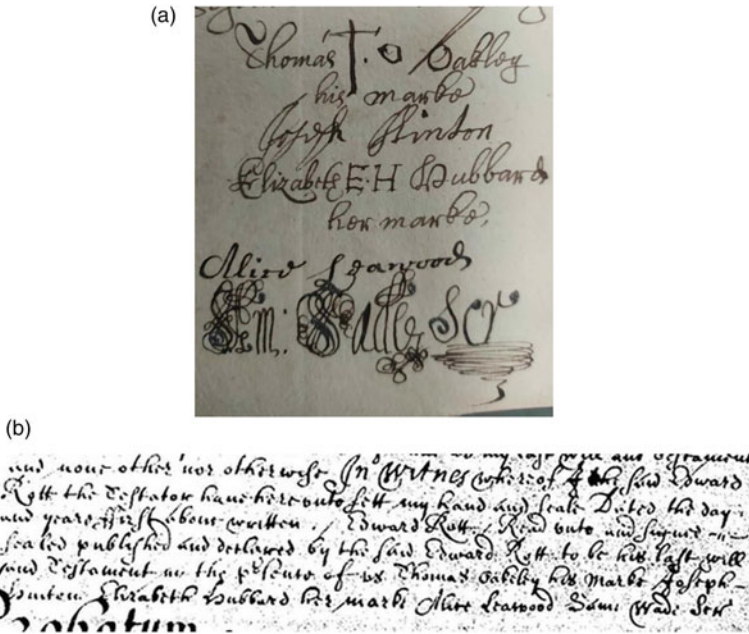 (a)
Thomas T. O Oakley
his marke
Joseph Stinton
Elizabeth E:H Hubbard
her marke,
Alice Leawood
Sam: Wade Scr
(b)
my last will and Testament
and none other nor otherwise In Witnes whereof I the said Edward
Rott the Testator have hereunto sett my hand and seale Dated the day
and yeare first above written / Edward Rott / Read unto and signed
sealed published and declared by the said Edward Rott to be his last will
and Testament in the p'sence of us Thomas Oakeley his marke Joseph
Stinton Elizabeth Hubbard her marke Alice Leawood Sam: Wade Scr
Probatum